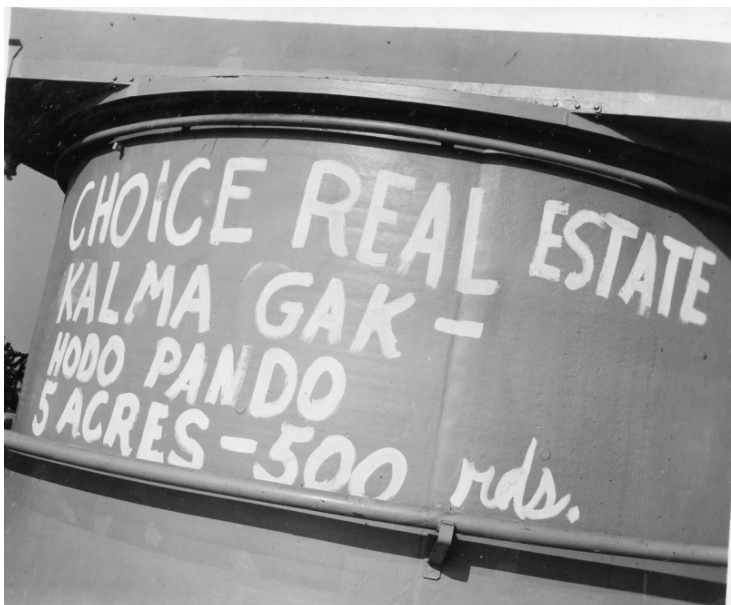 CHOICE REAL ESTATE
KALMA GAK –
HODO PANDO
5 ACRES – 500 rds.